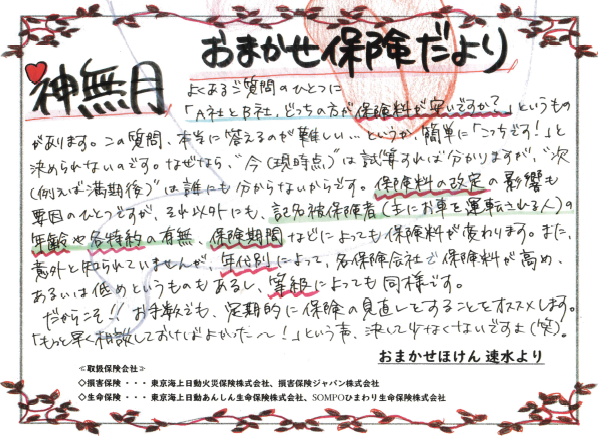 おまかせ保険だより
神無月
よくあるご質問のひとつに
「A社とB社、どっちの方が保険料が安いですか？」というもの
があります。この質問、本当に答えるのが難しい…というか、簡単に「こっちです！」と
決められないのです。なぜなら、“今（現時点）”は試算すれば分かりますが、“次
（例えば満期後）”は誰にも分からないからです。保険料の改定の影響も
要因のひとつですが、それ以外にも、記名被保険者（主にお車を運転される人）の
年齢や各特約の有無、保険期間などによっても保険料が変わります。また、
意外と知られていませんが、年代別によって、各保険会社で保険料が高め、
あるいは低めというものもあるし、等級によっても同様です。
だからこそ!! お手数でも、定期的に保険の見直しをすることをオススメします。
「もっと早く相談しておけばよかった〜！」という声、決して少なくないですよ（笑）。
おまかせほけん 速水より
≪取扱保険会社≫
◇損害保険・・・東京海上日動火災保険株式会社、損害保険ジャパン株式会社
◇生命保険・・・東京海上日動あんしん生命保険株式会社、SOMPOひまわり生命保険株式会社